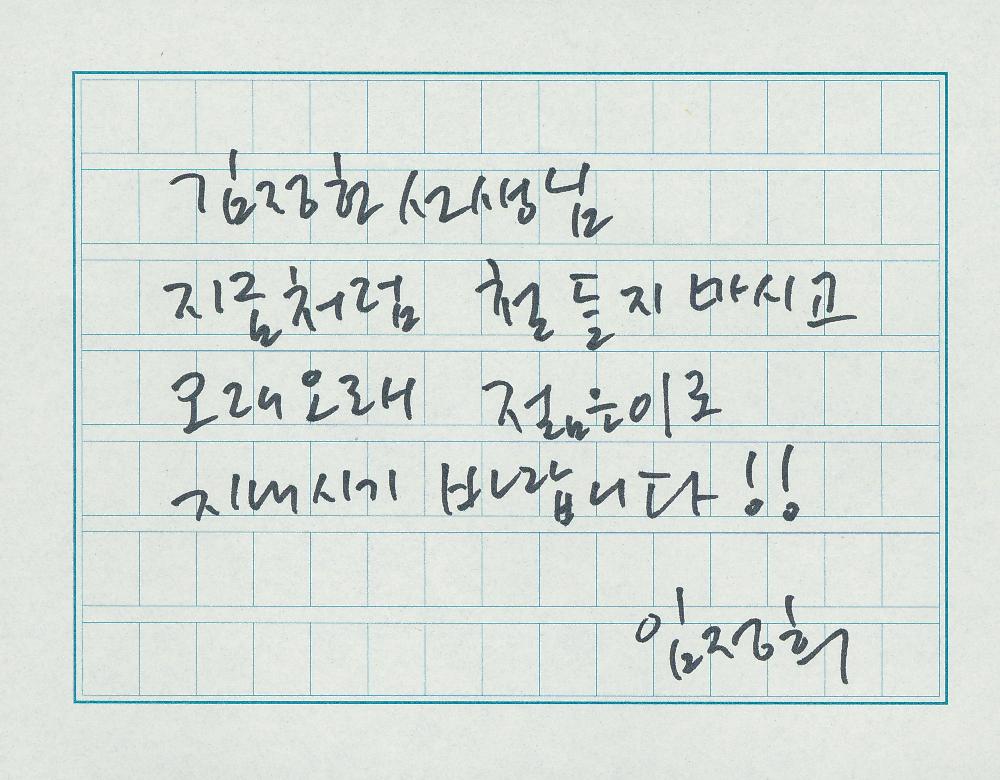 김정헌 선생님
지금처럼 철들지 마시고
오래오래 젊은이로
지내시기 바랍니다!!
임정희